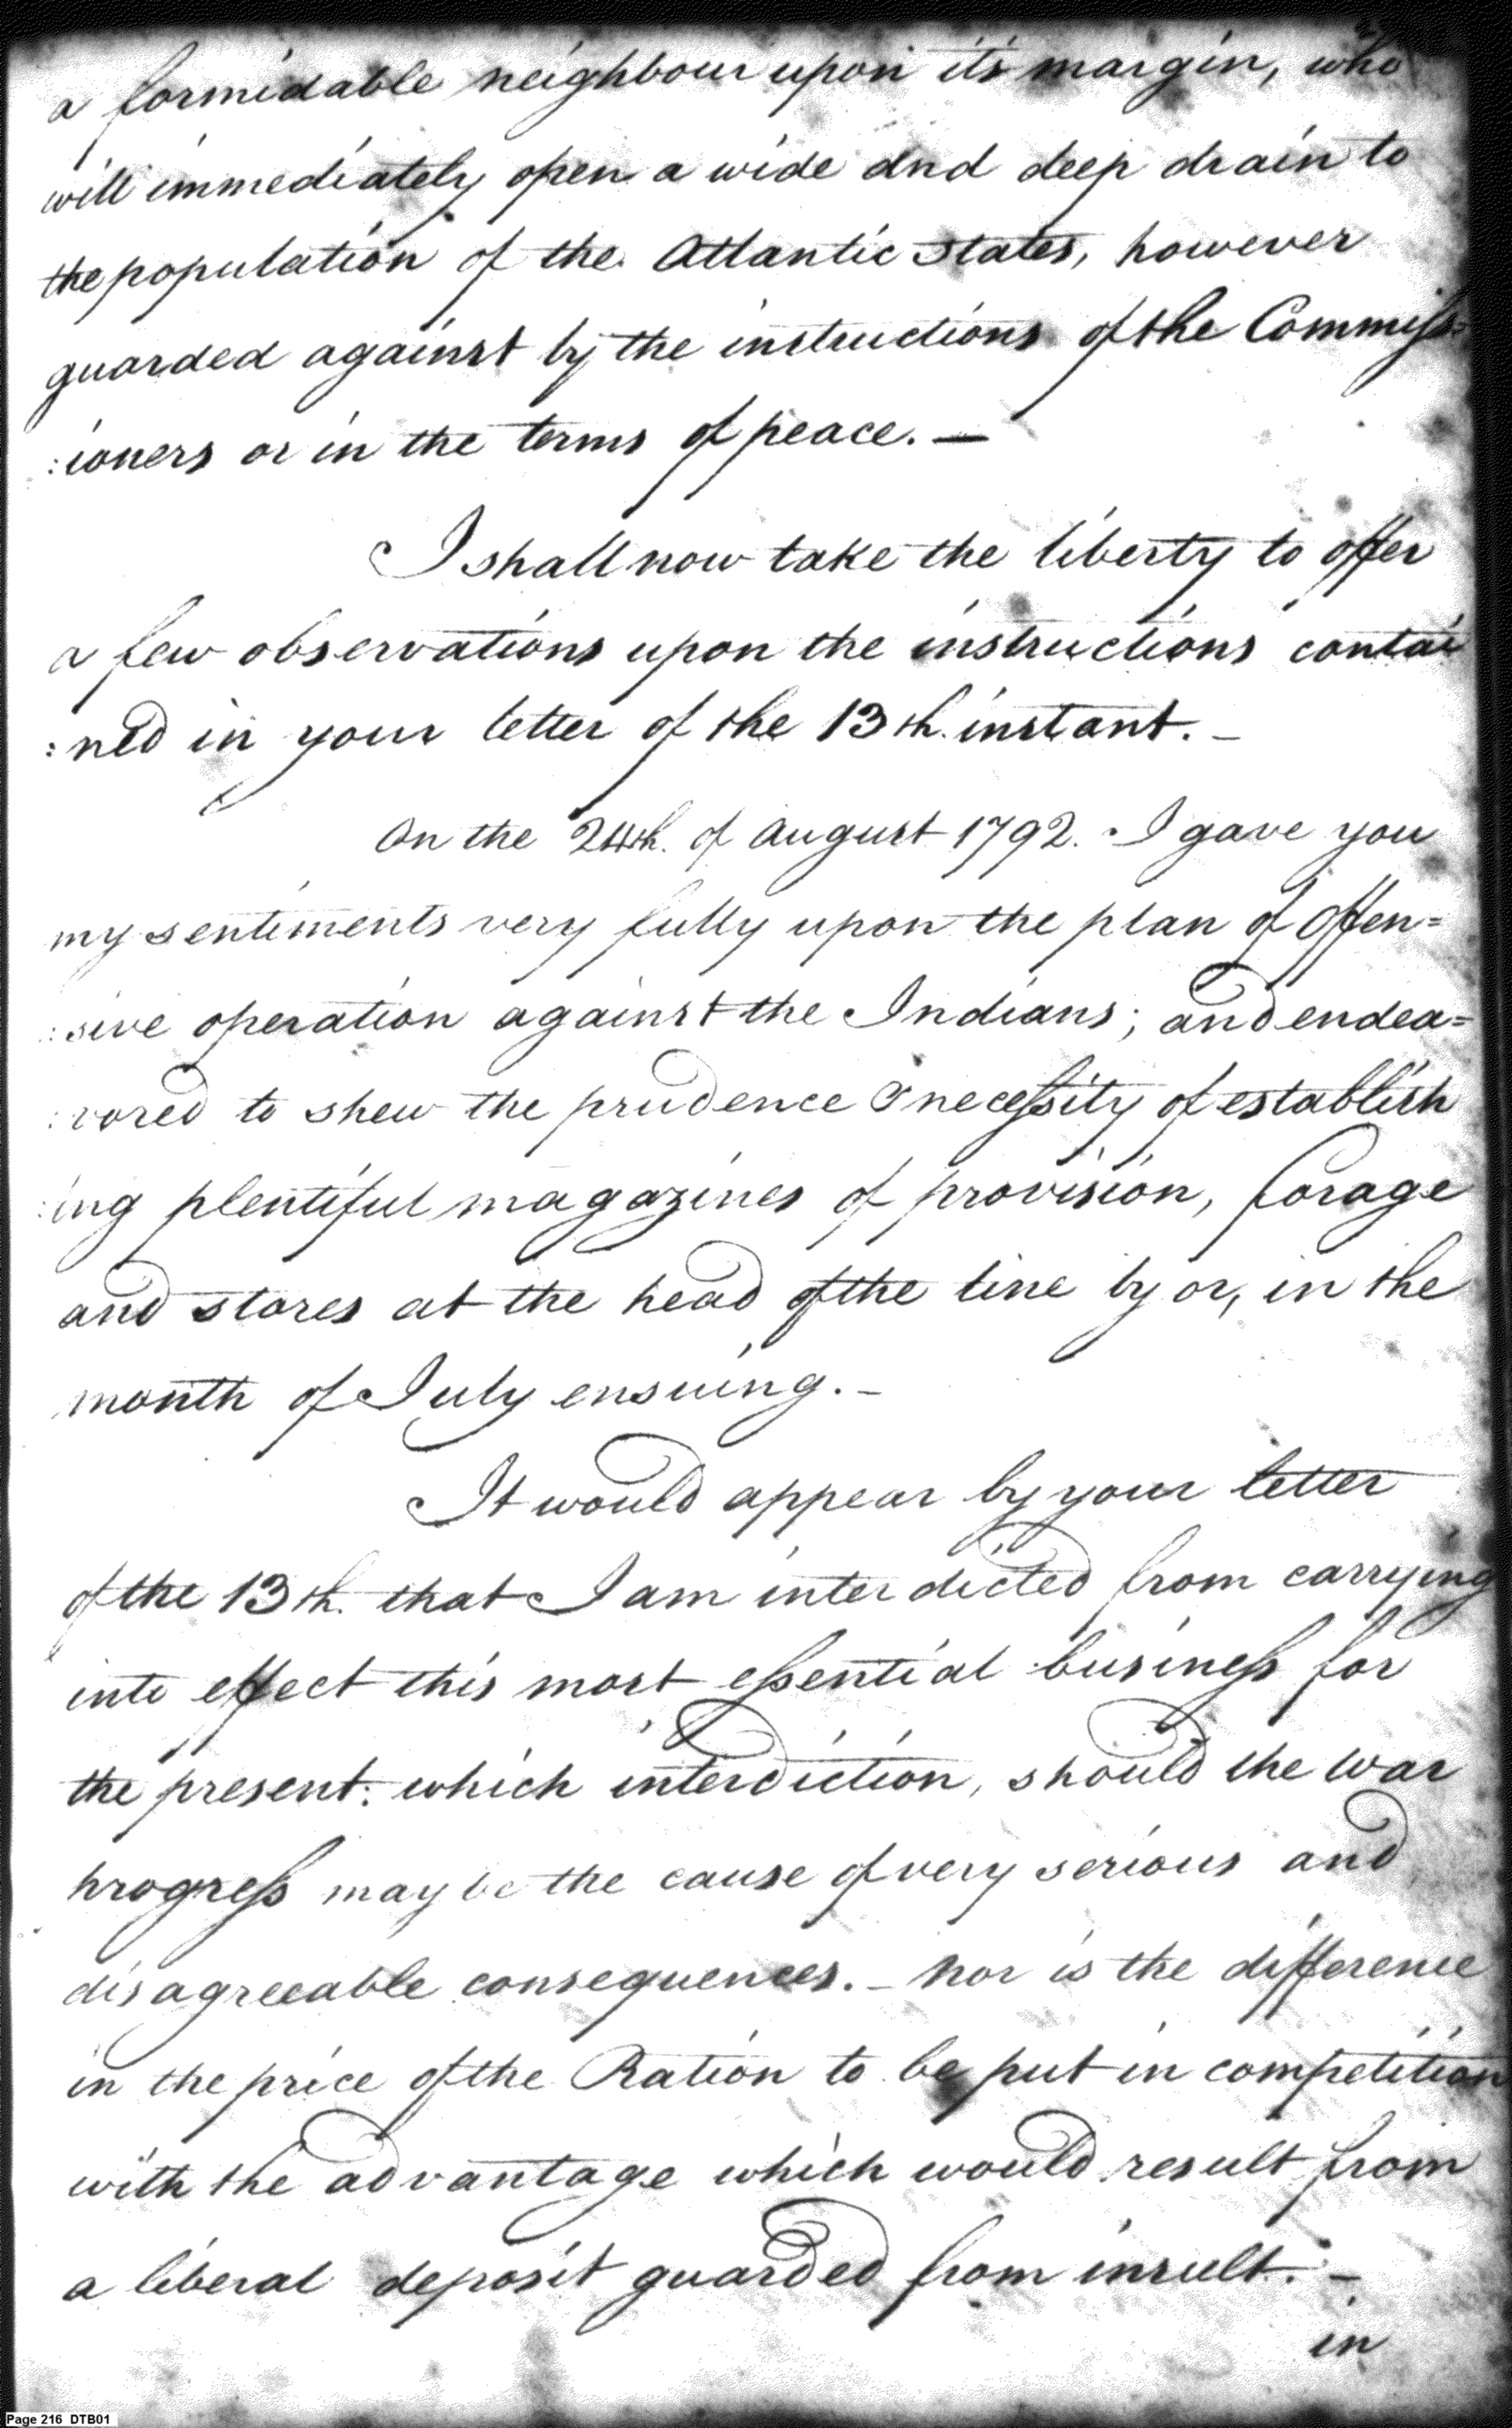 a formidable neighbour upon its margin, who
will immediately open a wide and deep drain to
the population of the Atlantic States, however
guarded against by the instructions of the Commiss=
:ioners or in the terms of peace. —
I shall now take the liberty to offer
a few observations upon the instructions contai
:ned in your letter of the 13th. instant. –
On the 24th. of August 1792. I gave you
my sentiments very fully upon the plan of Offen=
:sive operation against the Indians; and endea=
:vored to shew the prudence & necessity of establish
:ing plentiful magazines of provision, forage
and stores at the head of the line by or, in the
month of July ensuing. –
It would appear by your letter
of the 13th. that I am interdicted from carrying
into effect this most essential business for
the present: which interdiction, should the War
progress may be the cause of very serious and
disagreeable consequences. – nor is the difference
in the price of the Ration to be put in competition
with the advantage which would result from
a liberal deposit guarded from insult. –
in
Page 216 DTB01